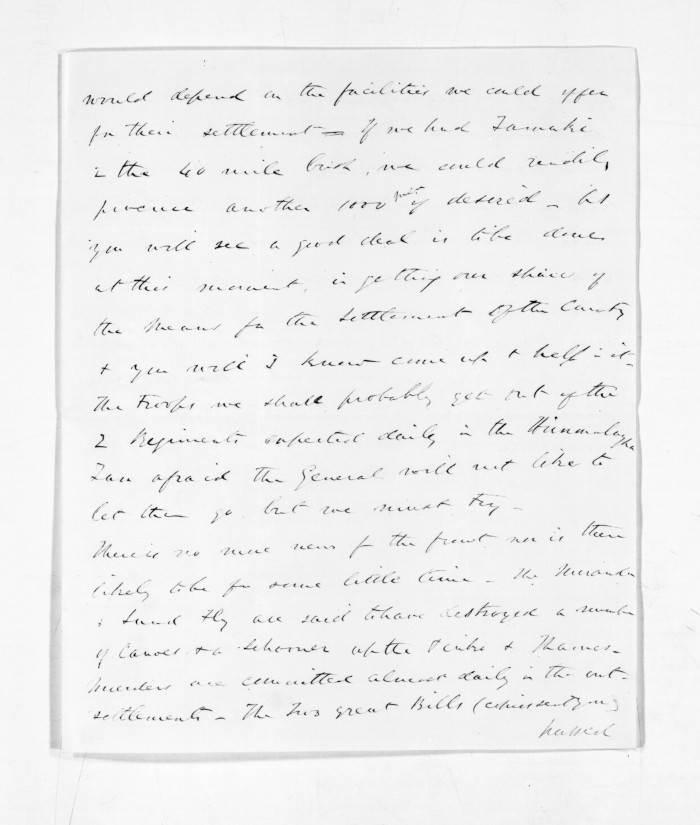 would depend on the facilities we could offer
for their settlement = If we had Tamaki
& the 40 mile Bush, we could readily
procure another 1000 men if desired – but
you will see a good deal is to be done
at this moment, in getting our share of
the Means for the Settlement of the Country
& you will I know come up & help in it –
The Troops we shall probably get out of the
2 Regiments expected daily in the Himmalayha
I am afraid the General will not like to
let them go but we must try –
There is no more news fm the front nor is there
likely to be for some little time – The Miranda
& Sand Fly are said to have destroyed a number
of Canoes & a Schooner up the Piako & Thames –
Murders are committed almost daily in the out-
settlements – The two great Bills (copies sent you)
passed